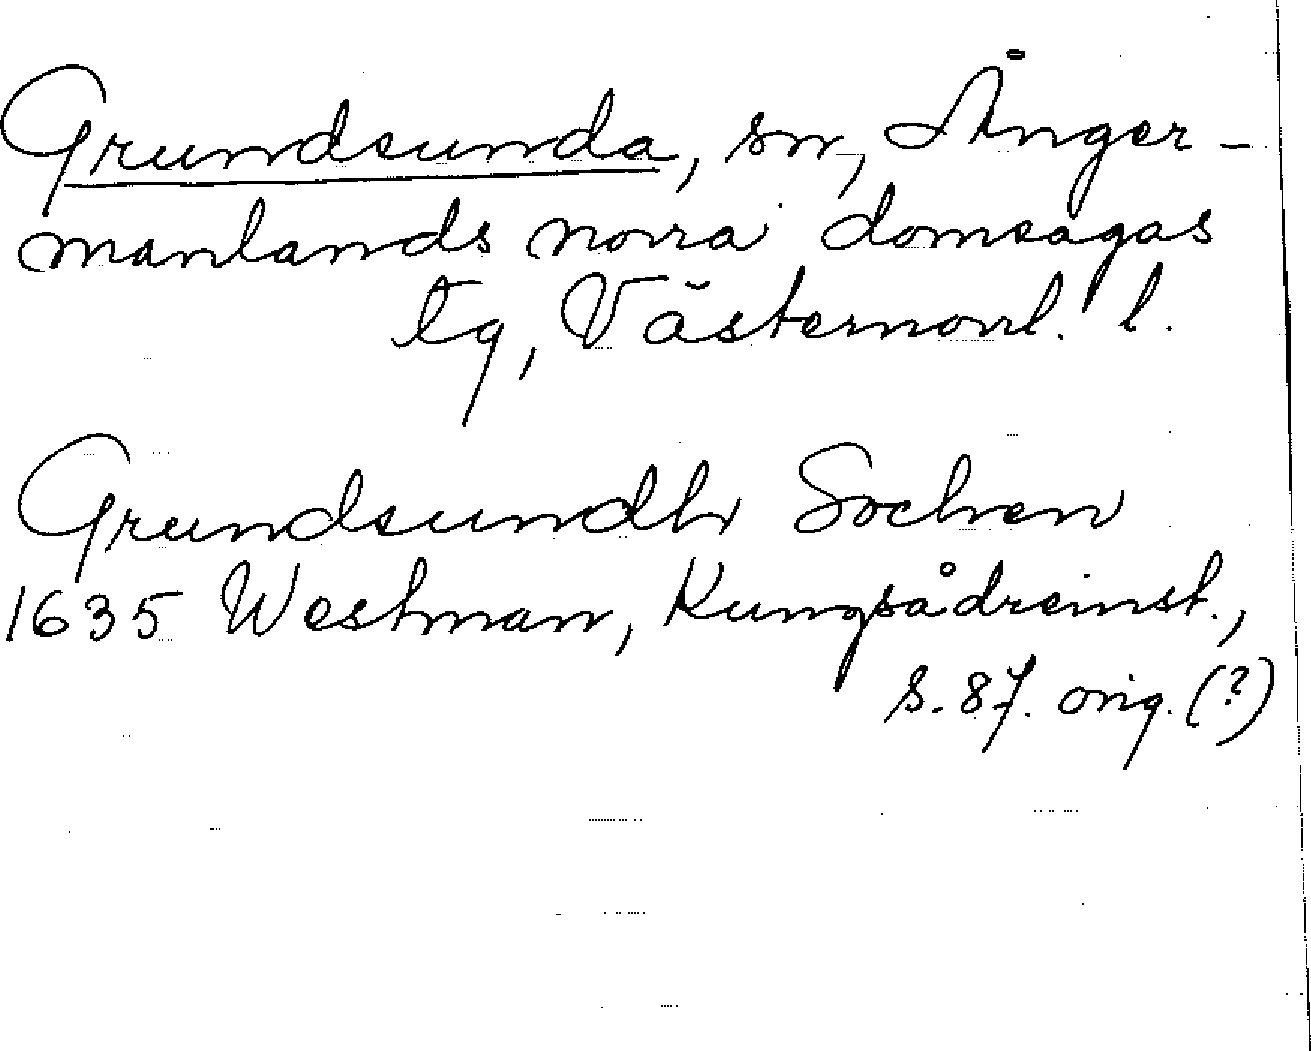 Grundsunda, sn, Ånger-
manlands norra domsagas
tg, Västernorrl. l.
Grundsundh Sochen
1635 Westman, Kungsådreinst.,
s. 87. orig. (?)